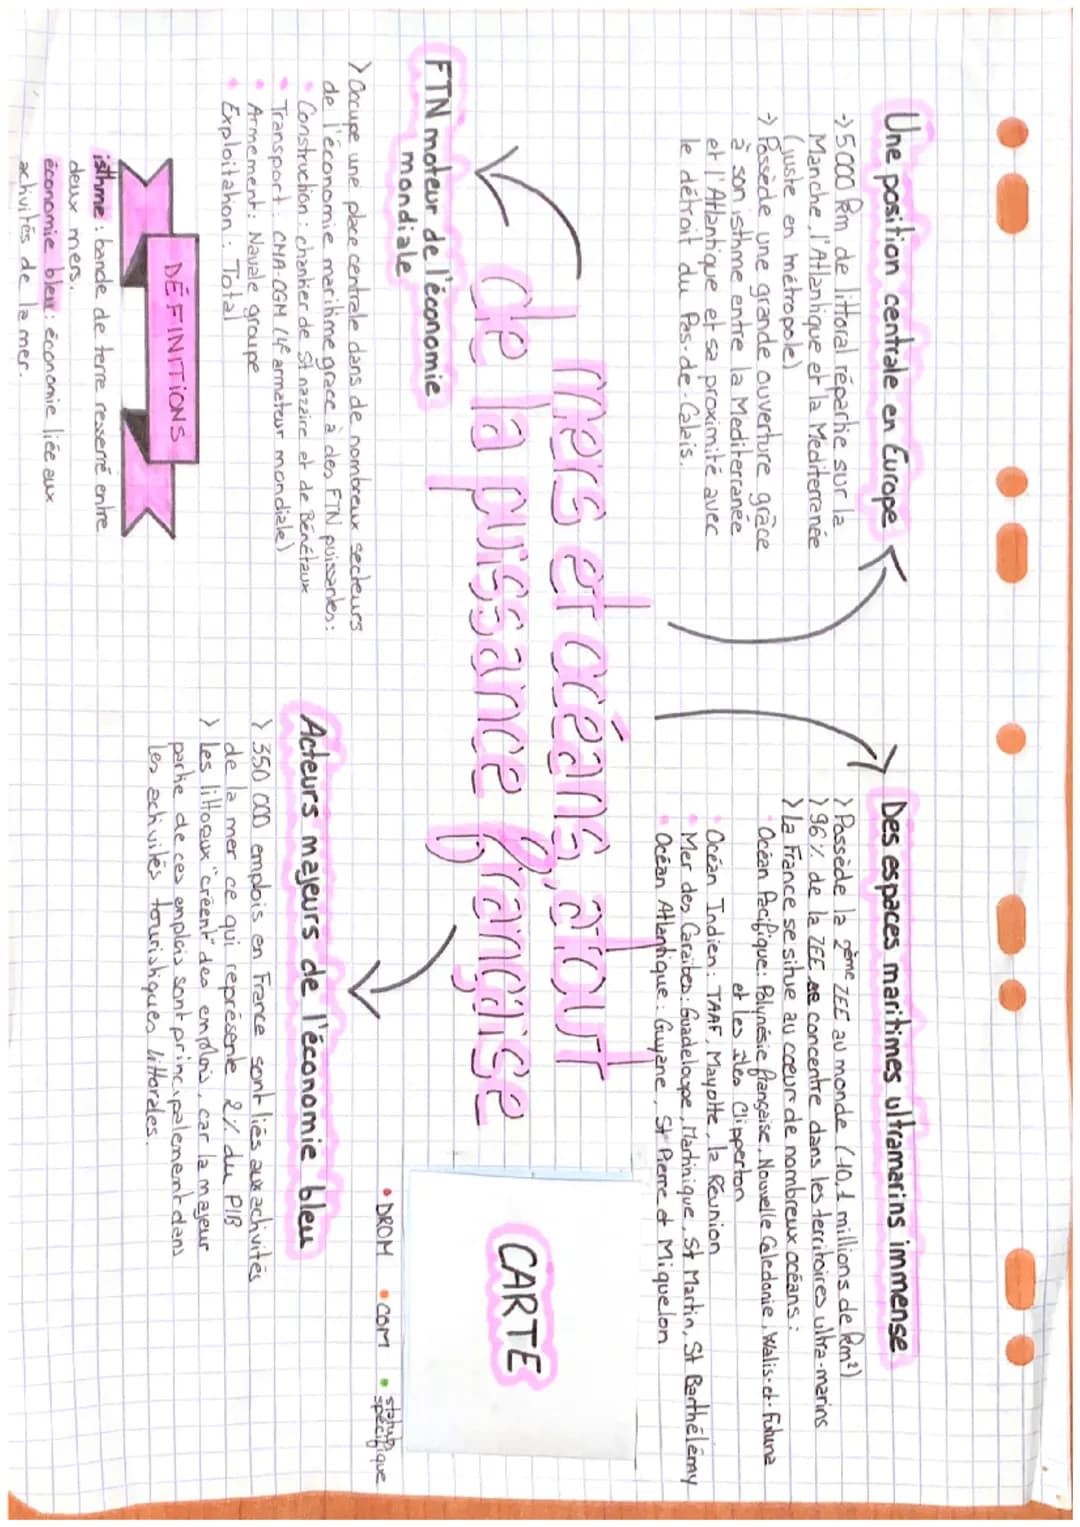 mers et océans, atout
de la puissance française
Une position centrale en Europe
-> 5 000 km de littoral répartie sur la
Manche, l'Atlantique et la Mediterranée
(juste en métropole)
-> Possède une grande ouverture grâce
à son isthme entre la Mediterranée
et l'Atlantique et sa proximité avec
le détroit du Pas-de-Calais.
Des espaces maritimes ultramarins immense
> Possède la 2ème ZEE au monde (10,1 millions de km²)
> 96% de la ZEE se concentre dans les territoires ultra-marins
> La France se situe au cœur de nombreux océans :
• Océan Pacifique : Polynésie française, Nouvelle Caledonie, Walis-et-Futuna
et les îles Clipperton
• Océan Indien : TAAF, Mayotte, la Réunion
• Mer des Caraïbes : Guadeloupe, Martinique, St Martin, St Barthélémy
• Océan Atlantique : Guyane, St Pierre et Miquelon
FTN moteur de l'économie
mondiale
> Occupe une place centrale dans de nombreux secteurs
de l'économie maritime grace à des FTN puissantes :
• Construction : chantier de St nazaire et de Bénétaux
• Transport : CMA-CGM (4e armateur mondiale)
• Armement : Navale groupe
• Exploitation : Total
DÉFINITIONS
isthme : bande de terre resserré entre
deux mers.
économie bleu : économie liée aux
activités de la mer.
CARTE
• DROM • COM • statut
spécifique
Acteurs majeurs de l'économie bleu
> 350 000 emplois en France sont liés aux activités
de la mer ce qui représente 2% du PIB
> Les littoraux "créent" des emplois, car la majeur
partie de ces emplois sont principalement dans
les activités touristiques littorales.